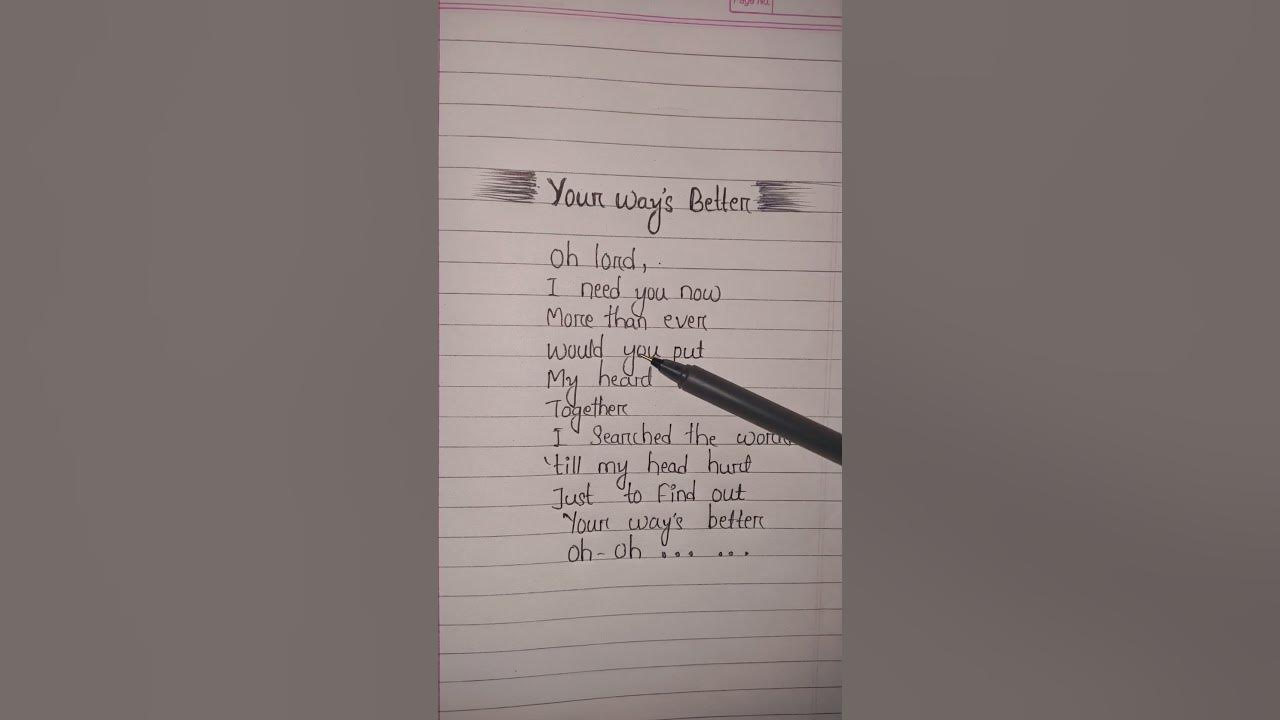 Page No.
Your way's Better
Oh lord,
I need you now
More than ever
Would you put
My heard
Together
I Searched the
'till my head hurt
Just to Find out
Your way's better
Oh-Oh ... ...